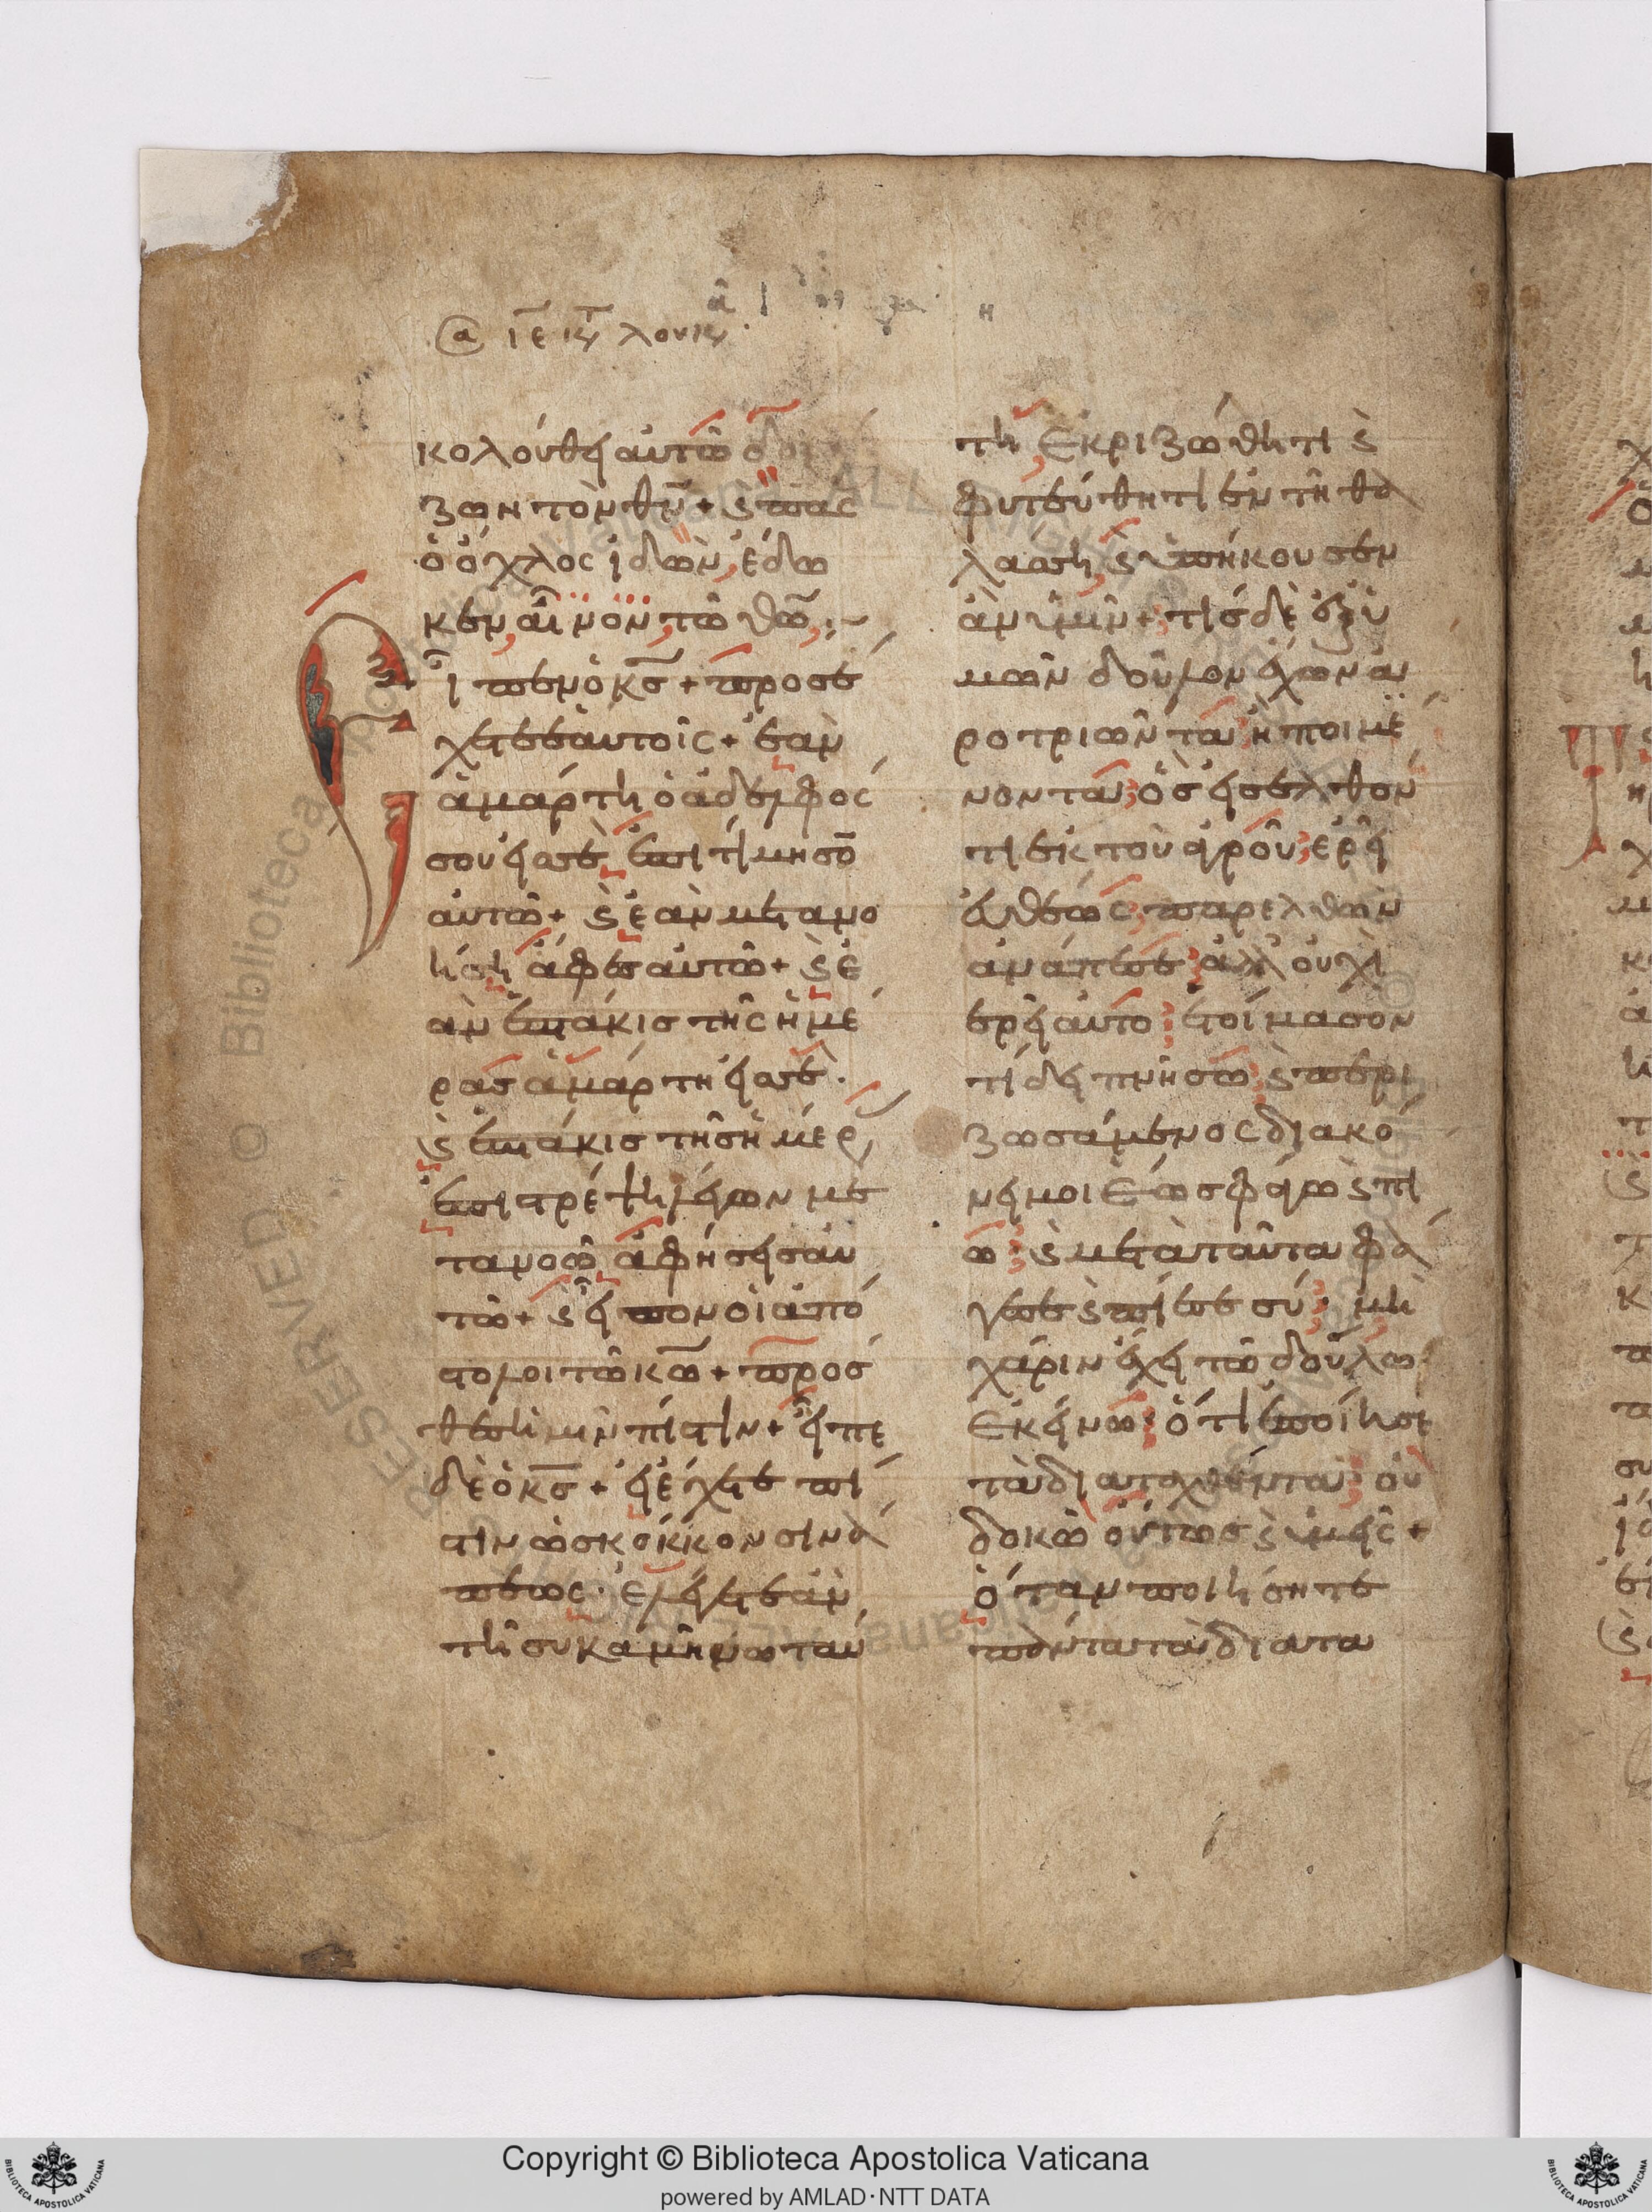 κολούθει αὐτῶ δοξά
ζων τὸν θν̅ + ϛ πας
ὁ ὄχλος ἰδὼν, ἔδω
κεν, αἶνον, τῶ θω̅
Εἶπεν ὁ κσ̅ + προσέ
χετε ἑαυτοῖς + ἐὰν
ἁμάρτη ὁ ἀδελφός
σου εἰς σὲ, ἐπιτίμησο̅
αὐτῶ + ϛ ἐὰν μετανο
ήση ἄφες αὐτῶ + ϛ ἐ
ὰν ἑπτάκις τῆς ἡμέ
ρας ἁμάρτη εἰς σέ.
ϛ ἑπτάκις τῆς ἡμέρ
ἐπιστρέψη λέγων με
τανοῶ ἀφήσεις αὐ
τῶ + ϛ εἶπον οἱ ἀπό
στολοι τῶ κω̅ + πρόσ
θες ἡμῖν πίστιν + εἶπε
δὲ ὁ κσ̅ + εἰ ἔχετε πί
στιν ὡς κόκκον σινά
πεως. ἐλέγετε ἂν
τῆ συκαμήνω ταύ
τη, ἐκριζώθητι ϛ
φυτεύθητι ἐν τῆ θα
λάσση, ϛ ὑπήκουσεν
ἂν ὑμῖν + τίς δὲ ἐξ ὑ
μῶν δοῦλον ἔχων ἀ
ροτριῶντα ἢ ποιμέ
νοντα, ὃς εἰσελθόν
τι ἐκ τοῦ ἀγροῦ, ἐρεῖ
εὐθέως, παρελθὼν
ἀνάπεσε, ἀλλ' οὐχὶ
ἐρεῖ αὐτο, ἑτοίμασον
τί δειπνήσω, ϛ περι
ζωσάμενος διακό
νει μοι ἕως φάγω ϛ πί
ω, ϛ μετὰ ταῦτα φά
γεσε ϛ πίεσε σύ, μὴ
χάριν ἔχει τῶ δούλω
ἐκείνω, ὅτι ἐποίησε
τὰ διαταχθέντα, οὐ
δοκῶ οὕτως ϛ ὑμεῖς +
ὅταν ποιήσητε
πάντα τὰ διατα